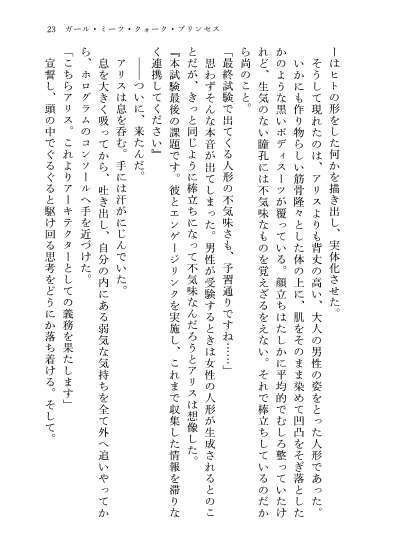 23　ガール・ミーツ・クォーク・プリンセス
ーはヒトの形をした何かを描き出し、実体化させた。
そうして現れたのは、アリスよりも背丈の高い、大人の男性の姿をとった人形であった。
いかにも作り物らしい筋骨隆々とした体の上に、肌をそのまま染めて凹凸をそぎ落とした
かのような黒いボディスーツが覆っている。顔立ちはたしかに平均的でむしろ整っていたけ
れど、生気のない瞳孔には不気味なものを覚えざるをえない。それで棒立ちしているのだか
ら尚のこと。
「最終試験で出てくる人形の不気味さも、予習通りですね……」
思わずそんな本音が出てしまった。男性が受験するときは女性の人形が生成されるとのこ
とだが、きっと同じように棒立ちになって不気味なんだろうとアリスは想像した。
『本試験最後の課題です。彼とエンゲージリンクを実施し、これまで収集した情報を滞りな
く連携してください』
――ついに、来たんだ。
アリスは息を呑む。手には汗がにじんでいた。
息を大きく吸ってから、吐き出し、自分の内にある弱気な気持ちを全て外へ追いやってか
ら、ホログラムのコンソールへ手を近づけた。
「こちらアリス。これよりアーキテクターとしての義務を果たします」
宣誓し、頭の中でぐるぐると駆け回る思考をどうにか落ち着ける。そして。